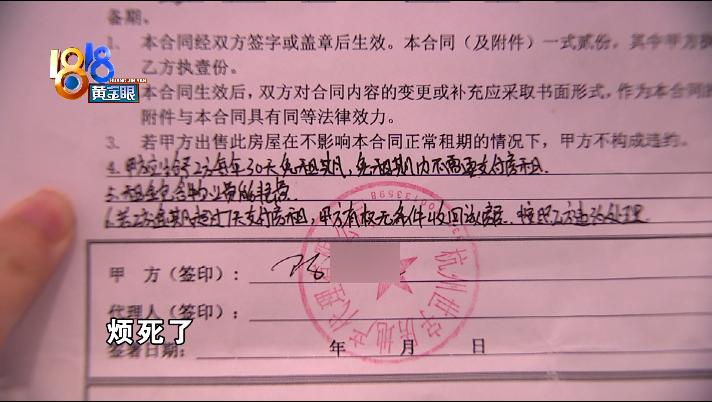 备期。
1. 本合同经双方签字或盖章后生效。本合同（及附件）一式贰份，其中甲方执
乙方执壹份。
1818
HUANG JIN YAN
黄金眼
本合同生效后，双方对合同内容的变更或补充应采取书面形式，作为本合同的
附件与本合同具有同等法律效力。
3. 若甲方出售此房屋在不影响本合同正常租期的情况下，甲方不构成违约。
4.甲方应给予乙方每年30天免租期，免租期内不需要支付房租.
5.租金包含物业费能耗费
6.若乙方逾期超过7天支付房租，甲方有权无条件收回该房屋.按照乙方违约处理.
甲 方（签印）：
杭州世宇房地产代理有限公司
代理人（签印）：
烦死了
签署日期： 年 月 日